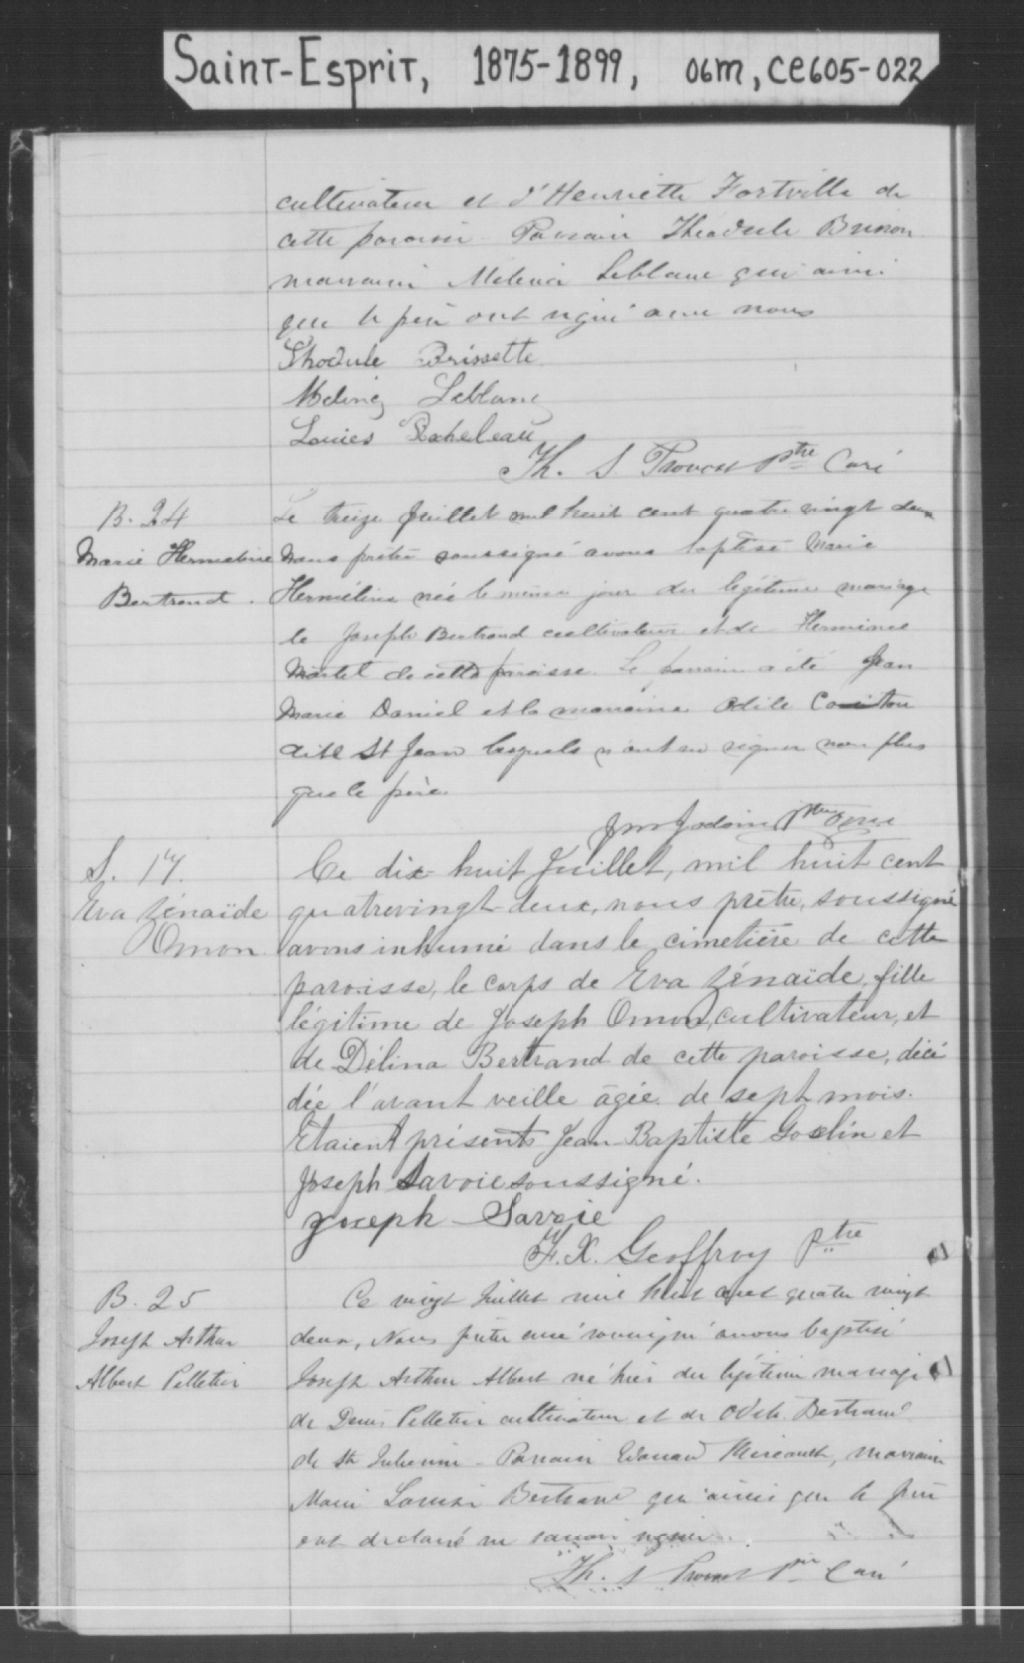 Saint-Esprit, 1875-1899, 06m, CE605-022
cultivateur et d'Henriette Fortville de
cette paroisse. Parrain Théodule
marraine Melina Leblanc qui ainsi
que le père ont signé avec nous
Thodule Brissette
Melina Leblanc
Louies Racheleau
Th. S Provost Ptre Curé
B. 24
Marie Hermeline
Bertrand.
Le treize Juillet mil huit cent quatre vingt deux
Nous prêtre soussigné avons baptisé Marie
Herméline née le même jour du légitime mariage
de Joseph Bertrand cultivateur et de Herminee
Martel de cette paroisse. Le parrain a été Jean
Marie Daniel et la marraine Odile
dite St Jean lesquels n'ont su signer non plus
que le père.
Ptre
S. 17.
Eva Zénaïde
Omon
Ce dix-huit Juillet, mil huit cent
quatrevingt-deux, nous prêtre, soussigné
avons inhumé dans le cimetière de cette
paroisse, le corps de Eva Zénaïde, fille
légitime de Joseph Omon, cultivateur, et
de Délina Bertrand de cette paroisse, décé
dée l'avant veille âgée de sept mois.
Etaient présents Jean-Baptiste Goslin et
Joseph Savoie soussigné.
Joseph Savoie
F. X. Geoffroy Ptre
B. 25
Joseph Arthur
Albert Pelletier
Ce vingt Juillet mil huit cent quatre vingt
deux, Nous prêtre curé soussigné avons baptisé
Joseph Arthur Albert né hier du légitime mariage
de Denis Pelletier cultivateur et de Odile Bertrand
de Ste Julienne. Parrain Edouard Mireault, marraine
Marie Bertrand qui ainsi que le père
ont déclaré ne savoir signer.
Th. S Provost Ptre Curé